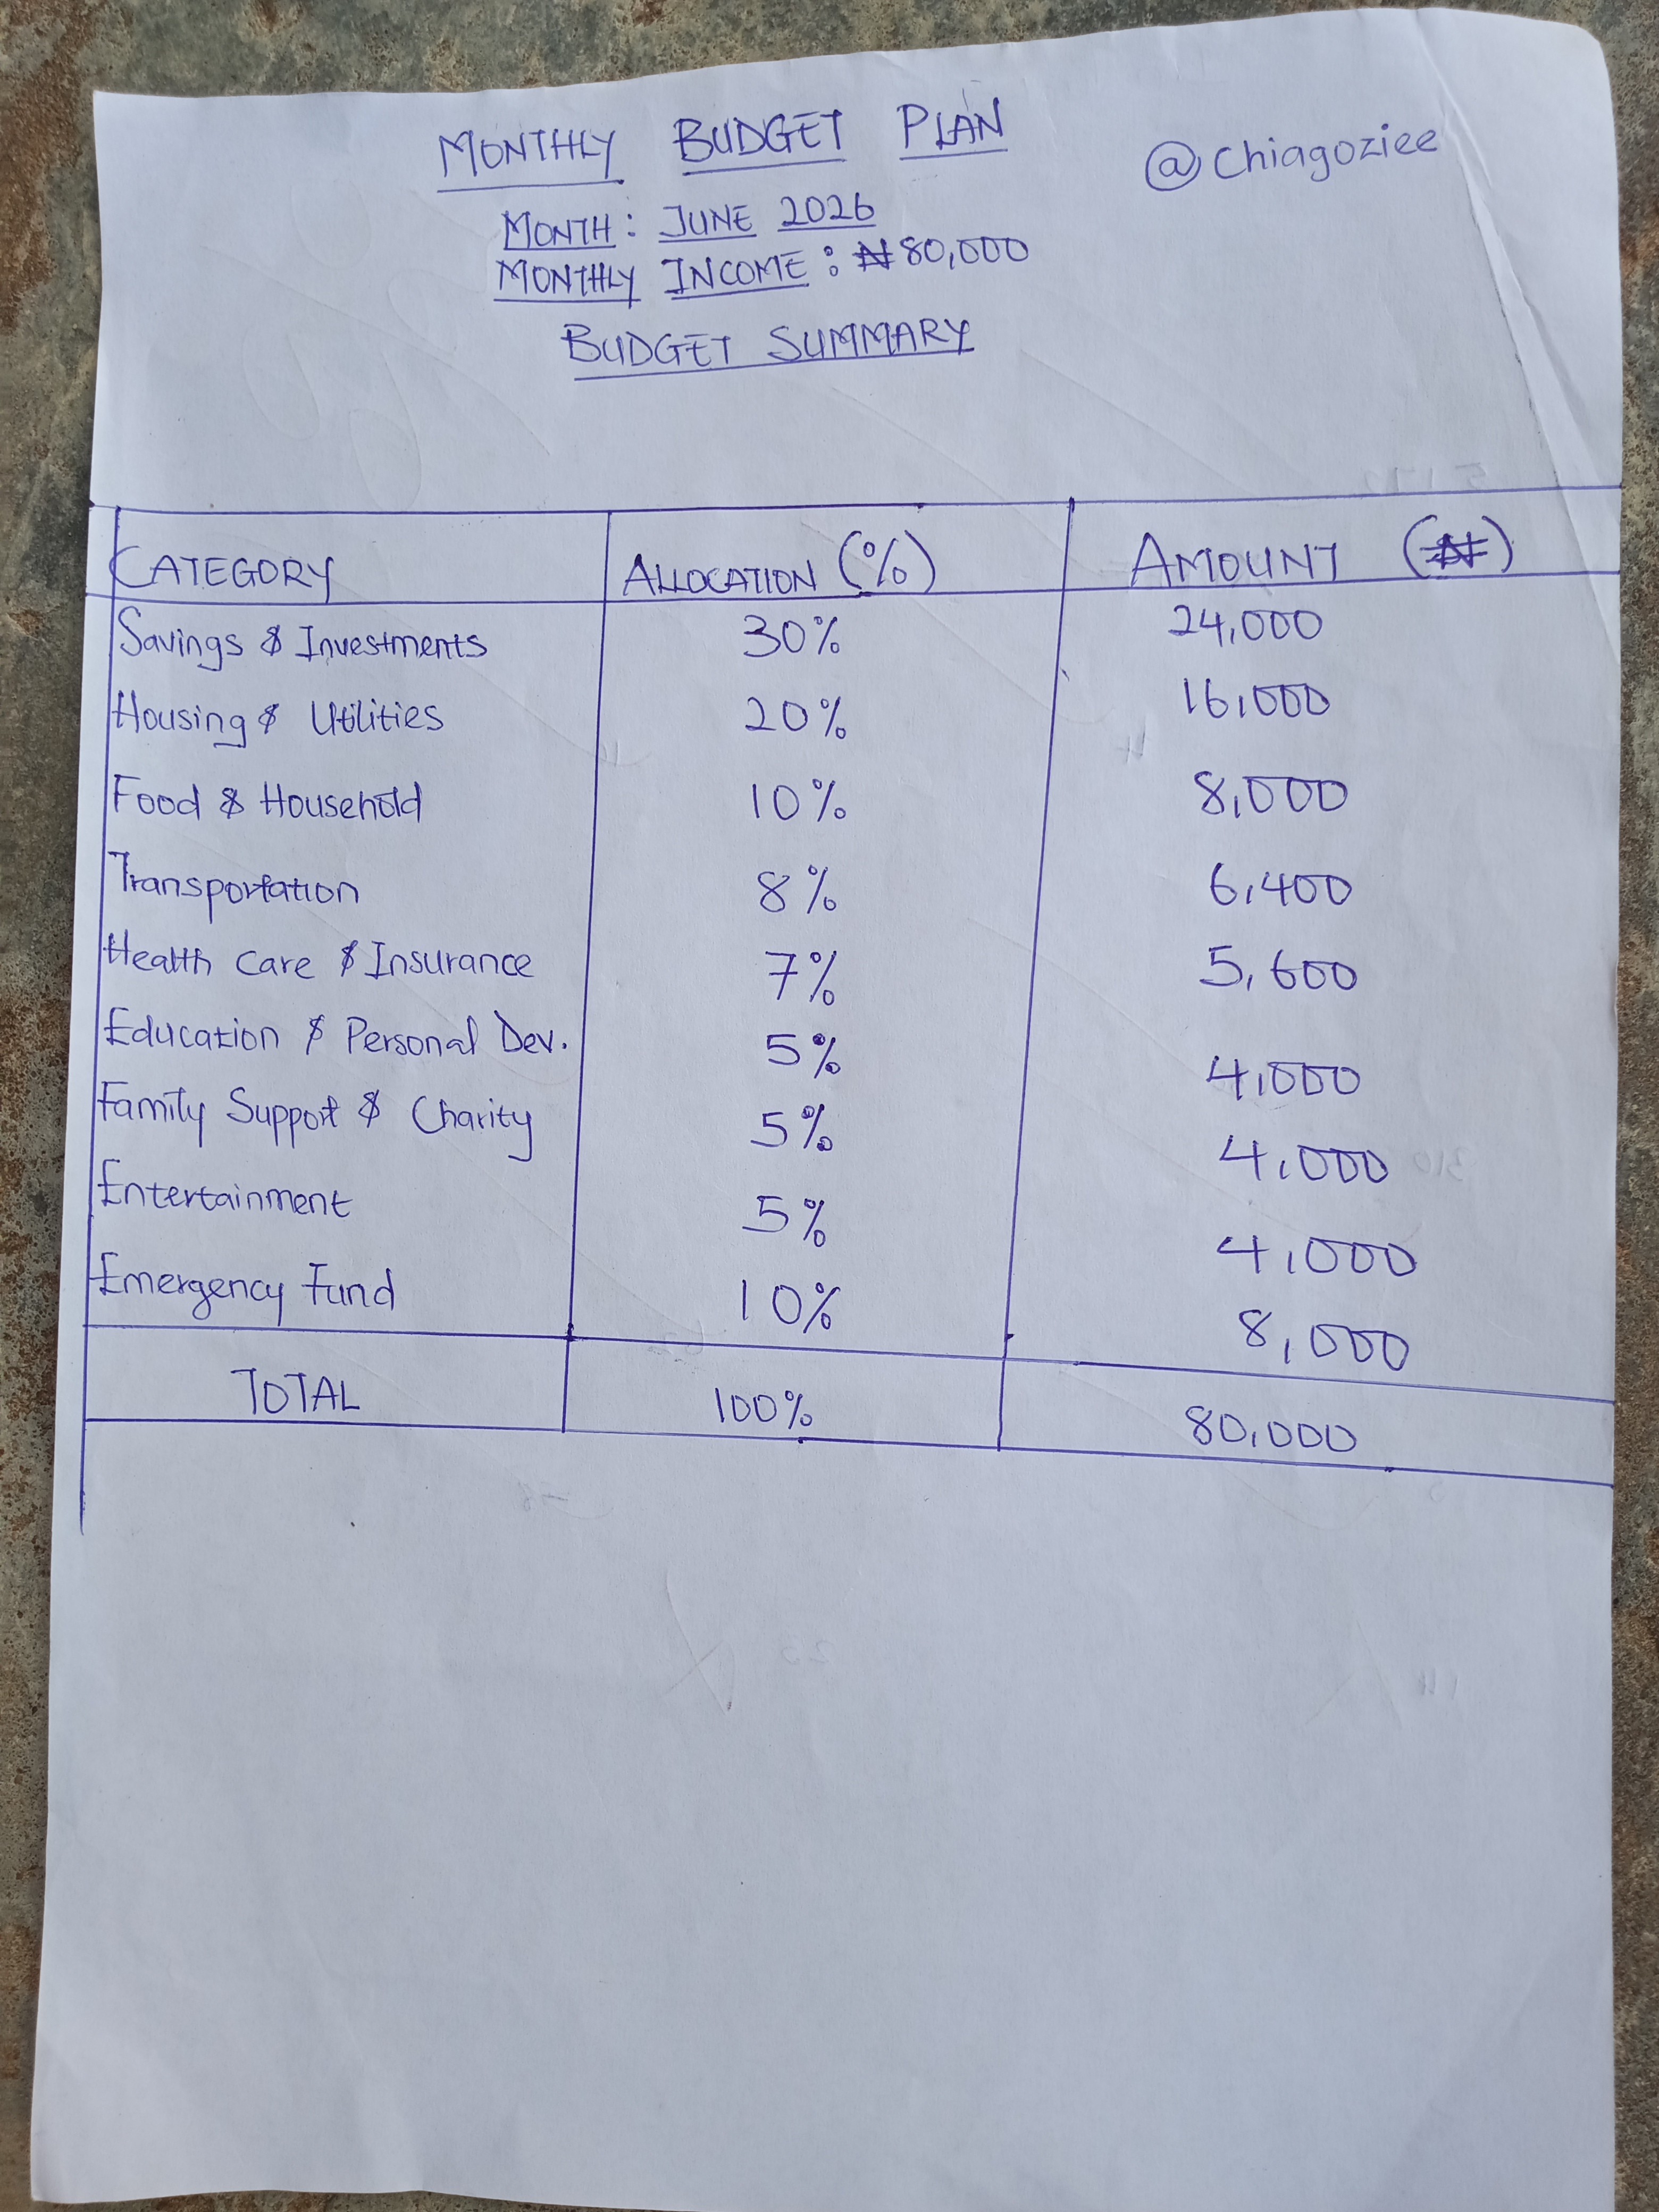 MONTHLY BUDGET PLAN
@Chiagoziee
MONTH: JUNE 2026
MONTHLY INCOME: ₦80,000
BUDGET SUMMARY
CATEGORY ALLOCATION (%) AMOUNT (₦)
Savings & Investments 30% 24,000
Housing & Utilities 20% 16,000
Food & Household 10% 8,000
Transportation 8% 6,400
Health Care & Insurance 7% 5,600
Education & Personal Dev. 5% 4,000
Family Support & Charity 5% 4,000
Entertainment 5% 4,000
Emergency Fund 10% 8,000
TOTAL 100% 80,000